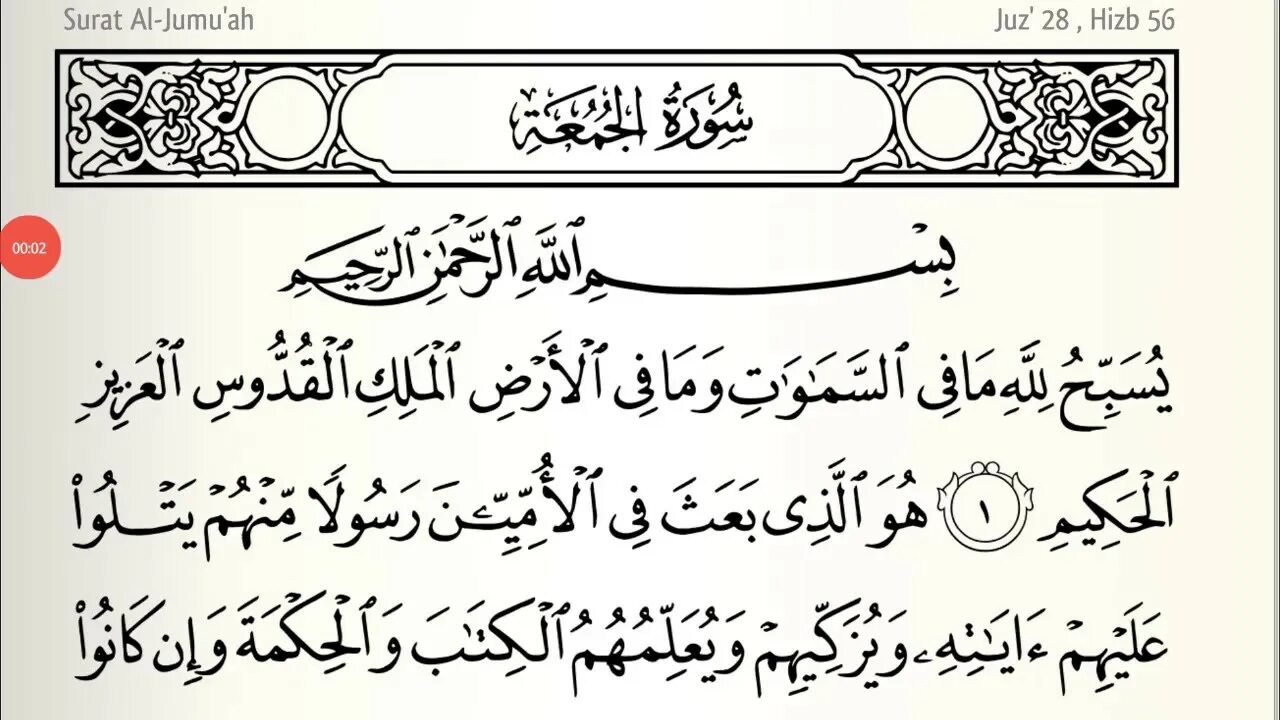 Surat Al-Jumu'ah
Juz' 28 , Hizb 56
سُورَةُ الجُمُعَةِ
00:02
بِسۡمِ ٱللَّهِ ٱلرَّحۡمَٰنِ ٱلرَّحِيمِ
يُسَبِّحُ لِلَّهِ مَا فِي ٱلسَّمَٰوَٰتِ وَمَا فِي ٱلۡأَرۡضِ ٱلۡمَلِكِ ٱلۡقُدُّوسِ ٱلۡعَزِيزِ
ٱلۡحَكِيمِ ١ هُوَ ٱلَّذِي بَعَثَ فِي ٱلۡأُمِّيِّـۧنَ رَسُولٗا مِّنۡهُمۡ يَتۡلُواْ
عَلَيۡهِمۡ ءَايَٰتِهِۦ وَيُزَكِّيهِمۡ وَيُعَلِّمُهُمُ ٱلۡكِتَٰبَ وَٱلۡحِكۡمَةَ وَإِن كَانُواْ